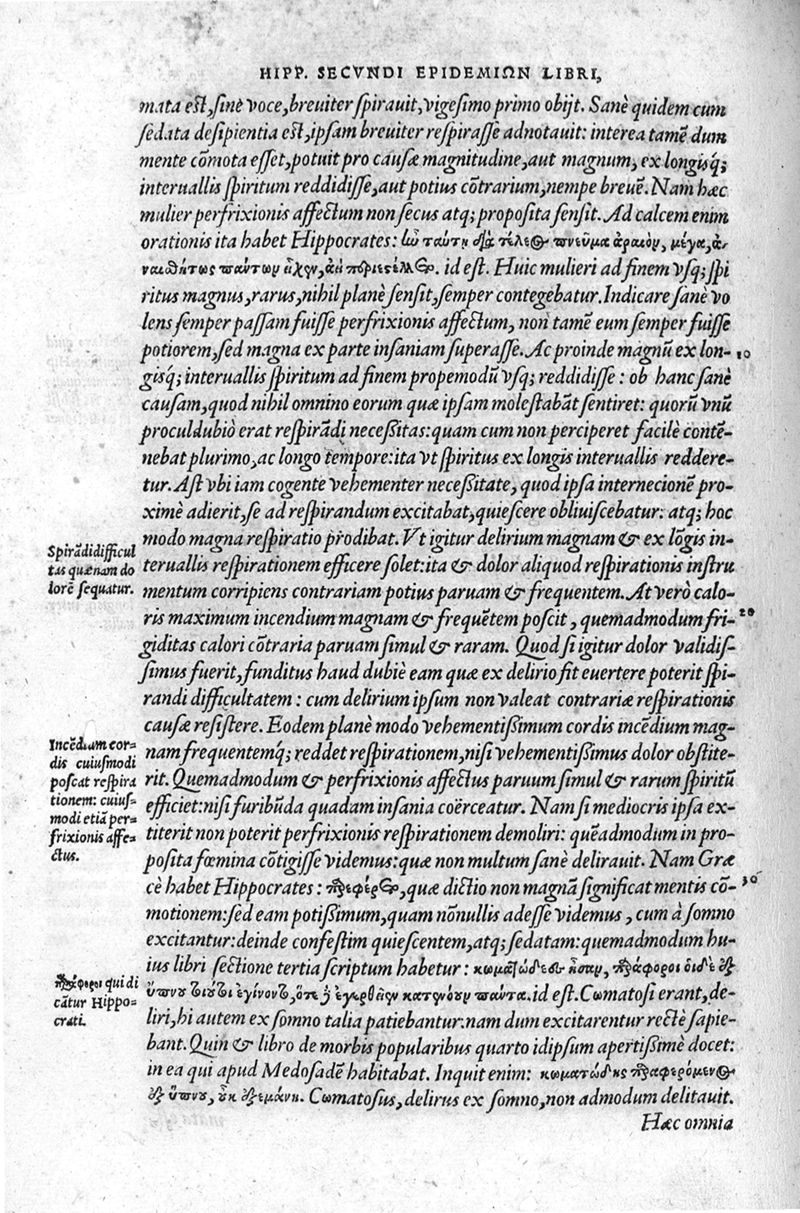 HIPP. SECVNDI EPIDEMIΩN LIBRI,
mata est, sine voce, breuiter spirauit, vigesimo primo obijt. Sanè quidem cum
sedata desipientia est, ipsam breuiter respirasse adnotauit: interea tamẽ dum
mente cõmota esset, potuit pro causæ magnitudine, aut magnum, ex longisq́;
interuallis spiritum reddidisse, aut potius cõtrarium, nempe breuẽ. Nam hæc
mulier perfrixionis affectum non secus atq; proposita sensit. Ad calcem enim
orationis ita habet Hippocrates: ταύτῃ διὰ τέλεος πνεῦμα ἀραιὸν, μέγα, ἀ-
ναισθήτως πάντων εἶχεν, id est. Huic mulieri ad finem vsq; spi
ritus magnus, rarus, nihil planè sensit, semper contegebatur. Indicare sanè vo
lens semper passam fuisse perfrixionis affectum, non tamẽ eum semper fuisse
potiorem, sed magna ex parte insaniam superasse. Ac proinde magnũ ex lon- 10
gisq́; interuallis spiritum ad finem propemodũ vsq; reddidisse: ob hanc sanè
causam, quod nihil omnino eorum quæ ipsam molestabãt sentiret: quorũ vnũ
proculdubiò erat respirãdi necessitas: quam cum non perciperet facilè contẽ-
nebat plurimo, ac longo tempore: ita vt spiritus ex longis interuallis reddere-
tur. Ast vbi iam cogente vehementer necessitate, quod ipsa internecionẽ pro-
ximè adierit, se ad respirandum excitabat, quiescere obliuiscebatur: atq; hoc
modo magna respiratio prodibat. Vt igitur delirium magnam & ex lõgis in-
Spirãdi difficul
tas quænam do
lorẽ sequatur.
teruallis respirationem efficere solet: ita & dolor aliquod respirationis instru
mentum corripiens contrariam potius paruam & frequentem. At verò calo-
ris maximum incendium magnam & frequẽtem poscit, quemadmodum fri- 20
giditas calori cõtraria paruam simul & raram. Quod si igitur dolor validis-
simus fuerit, funditus haud dubiè eam quæ ex delirio fit euertere poterit spi-
randi difficultatem: cum delirium ipsum non valeat contrariæ respirationis
causæ resistere. Eodem planè modo vehementissimum cordis incẽdium mag-
Incẽdium cor-
dis cuiusmodi
poscat respira
tionem: cuius-
modi etiã per-
frixionis affe-
ctus.
nam frequentemq́; reddet respirationem, nisi vehementissimus dolor obstite-
rit. Quemadmodum & perfrixionis affectus paruum simul & rarum spiritũ
efficiet: nisi furibũda quadam insania coërceatur. Nam si mediocris ipsa ex-
titerit non poterit perfrixionis respirationem demoliri: quẽadmodum in pro-
posita fœmina cõtigisse videmus: quæ non multum sanè delirauit. Nam Græ
cè habet Hippocrates: παρεφέρετο, quæ dictio non magnã significat mentis cõ- 30
motionem: sed eam potissimum, quam nõnullis adesse videmus, cum à somno
excitantur: deinde confestim quiescentem, atq; sedatam: quemadmodum hu-
ius libri sectione tertia scriptum habetur: κωματώδεες ἦσαν, παράφοροι οἱ δὲ ἐξ
παράφοροι qui di
cãtur Hippo-
crati.
ὕπνου τοιοῦτοι ἐγίνοντο, ὅτε δὲ ἐγερθεῖεν κατενόουν πάντα. id est. Comatosi erant, de-
liri, hi autem ex somno talia patiebantur: nam dum excitarentur rectè sapie-
bant. Quin & libro de morbis popularibus quarto idipsum apertissimè docet:
in ea qui apud Medosadẽ habitabat. Inquit enim: κωματώδης παραφερόμενος
ἐξ ὕπνου, οὐκ ἐξεμάνη. Comatosus, delirus ex somno, non admodum delitauit.
Hæc omnia